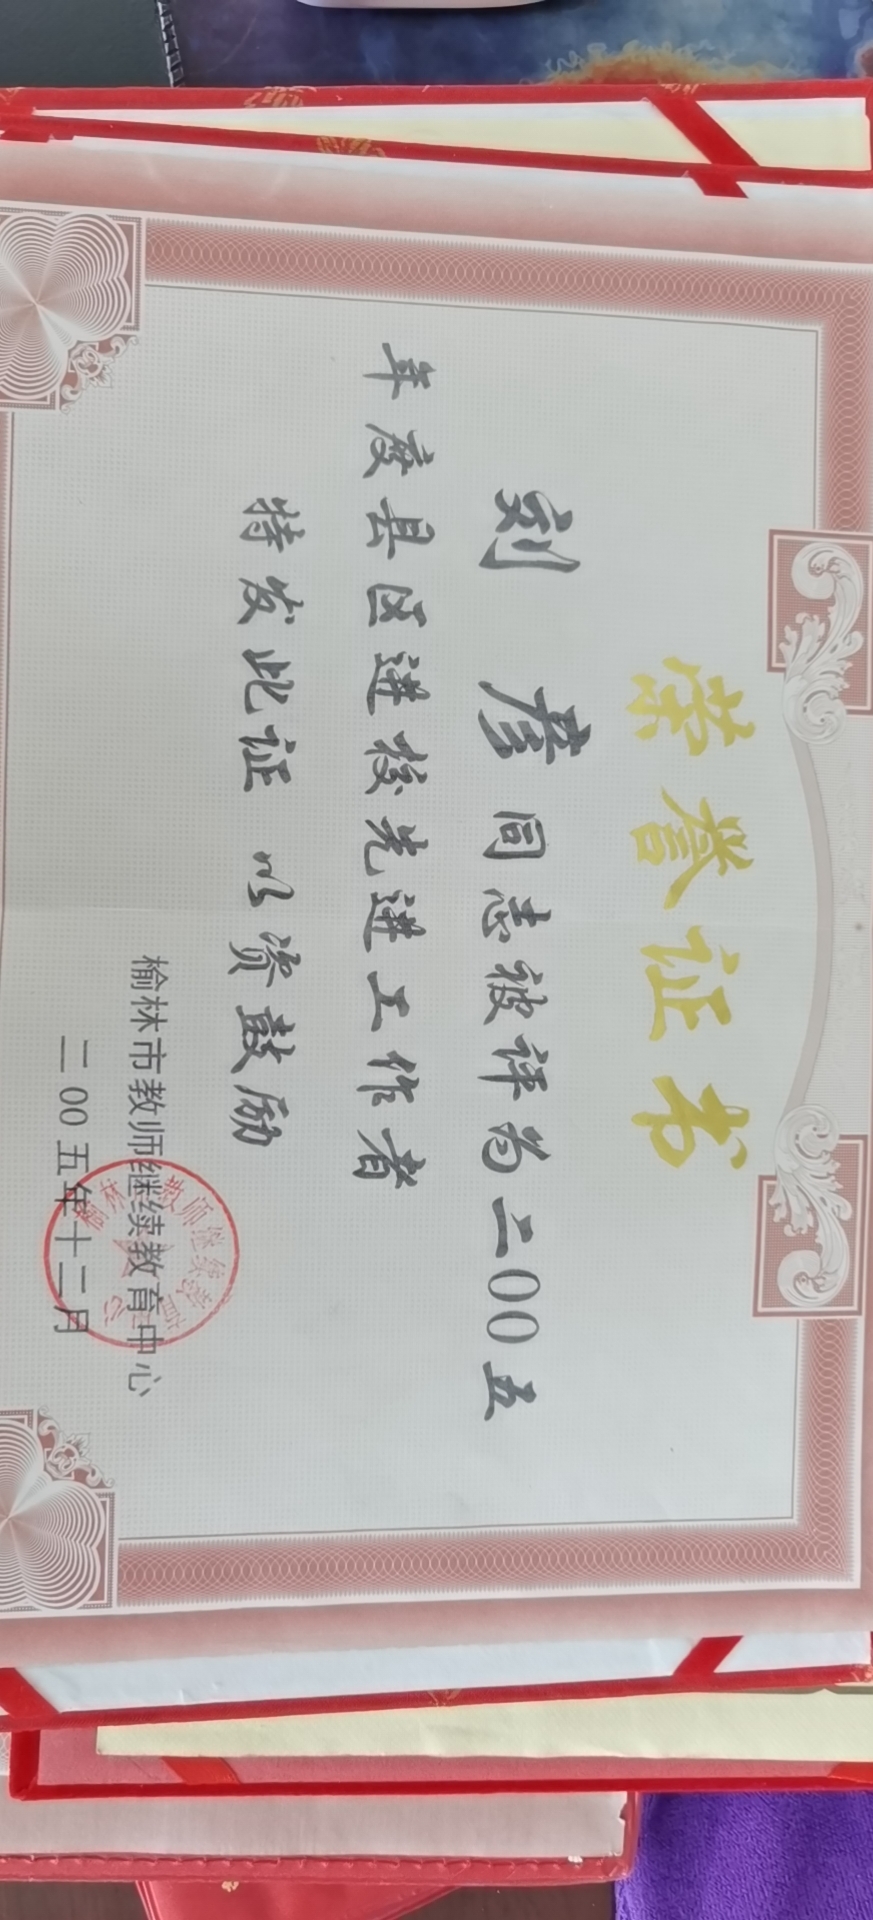 荣誉证书
刘彦同志被评为二00五
年度县区进校先进工作者
特发此证 以资鼓励
榆林市教师继续教育中心
二00五年十二月
榆林市教师继续教育中心